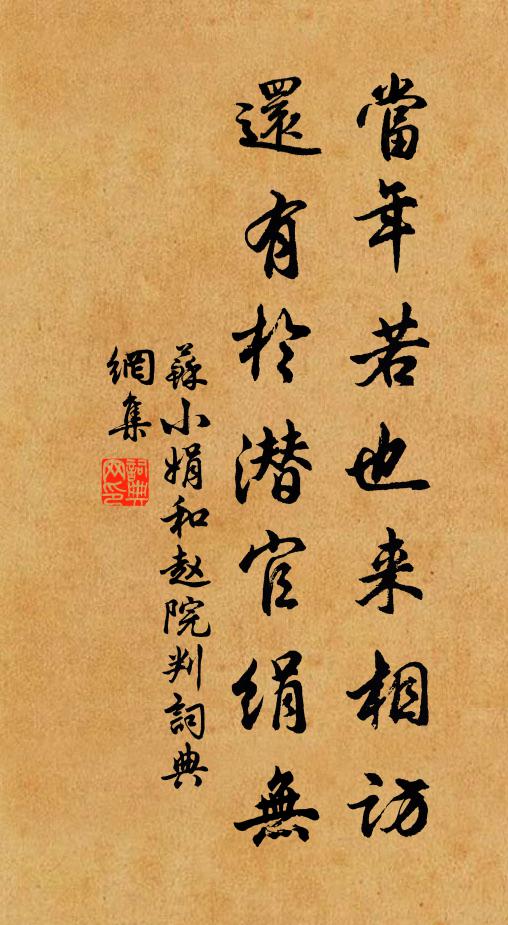 當年若也来相訪
還有於潛官绢無
蘇小娟和赵院判詞典
網集
詞典
网印